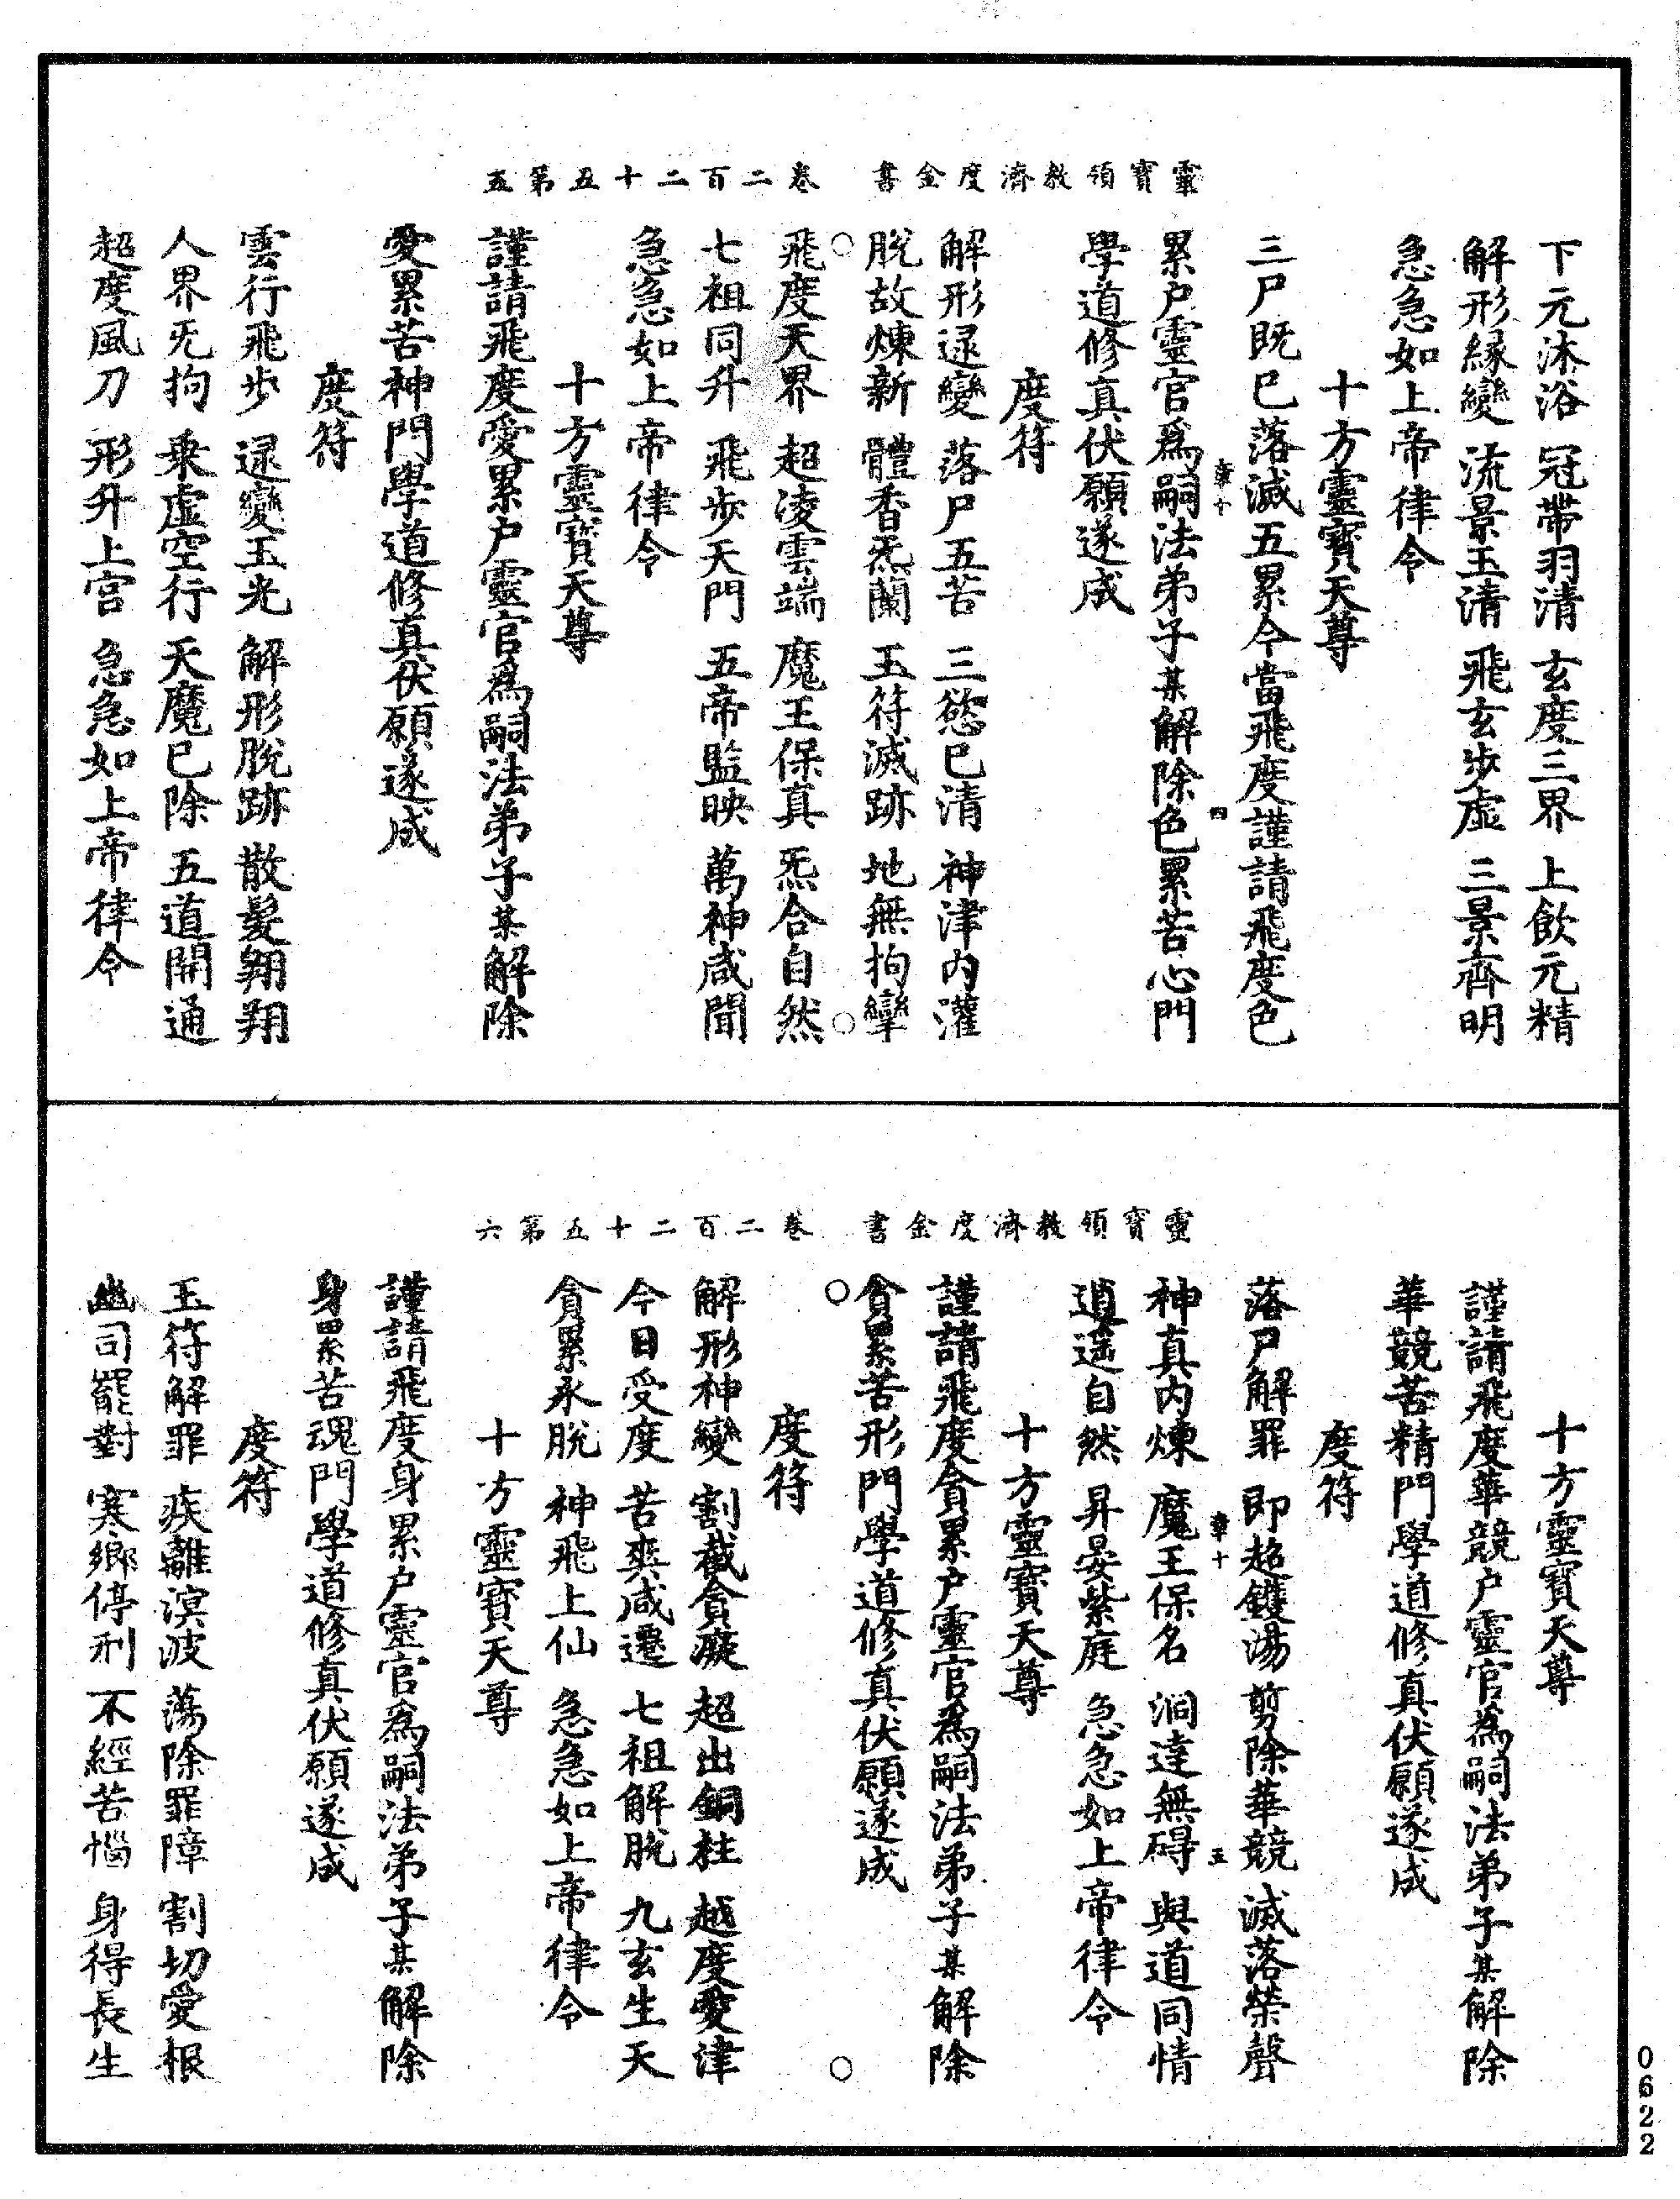 靈寶領教濟度金書　卷二百二十五第五
下元沐浴　冠帶羽清　玄度三界　上飲元精
解形緣變　流景玉清　飛玄步虛　三景齊明
急急如上帝律令
十方靈寶天尊
三尸既已落滅五累今當飛度謹請飛度色
章十　四
累户靈官爲嗣法弟子某解除色累苦心門
學道修真伏願遂成
度符
解形逯變　落尸五苦　三慾已清　神津内灌
脫故煉新　體香炁蘭　玉符滅跡　地無拘攣
飛度天界　超淩雲端　魔王保真　炁合自然
七祖同升　飛步天門　五帝監映　萬神咸聞
急急如上帝律令
十方靈寶天尊
謹請飛度愛累户靈官爲嗣法弟子某解除
愛累苦神門學道修真伏願遂成
度符
雲行飛步　逯變玉光　解形脫跡　散髮翱翔
人界旡拘　乘虛空行　天魔已除　五道開通
超度風刀　形升上宮　急急如上帝律令
靈寶領教濟度金書　卷二百二十五第六
十方靈寶天尊
謹請飛度華競户靈官爲嗣法弟子某解除
華競苦精門學道修真伏願遂成
度符
落尸解罪　即超鑊湯　剪除華競　滅落榮聲
章十　五
神真内煉　魔王保名　洞達無碍　與道同情
逍遥自然　昇晏紫庭　急急如上帝律令
十方靈寶天尊
謹請飛度貪累户靈官爲嗣法弟子某解除
貪累苦形門學道修真伏願遂成
度符
解形神變　割截貪癡　超出銅柱　越度愛津
今日受度　苦爽咸遷　七祖解脫　九玄生天
貪累永脫　神飛上仙　急急如上帝律令
十方靈寶天尊
謹請飛度身累户靈官爲嗣法弟子某解除
身累苦魂門學道修真伏願遂成
度符
玉符解罪　疾離溟波　蕩除罪障　割切愛根
幽司罷對　寒鄉停刑　不經苦惱　身得長生
0622